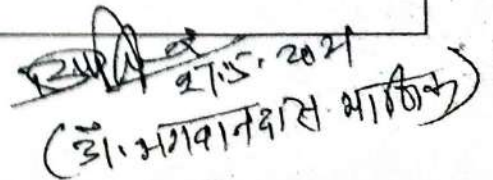 27.5.2021
(डॉ. भगवानदास माणिक)